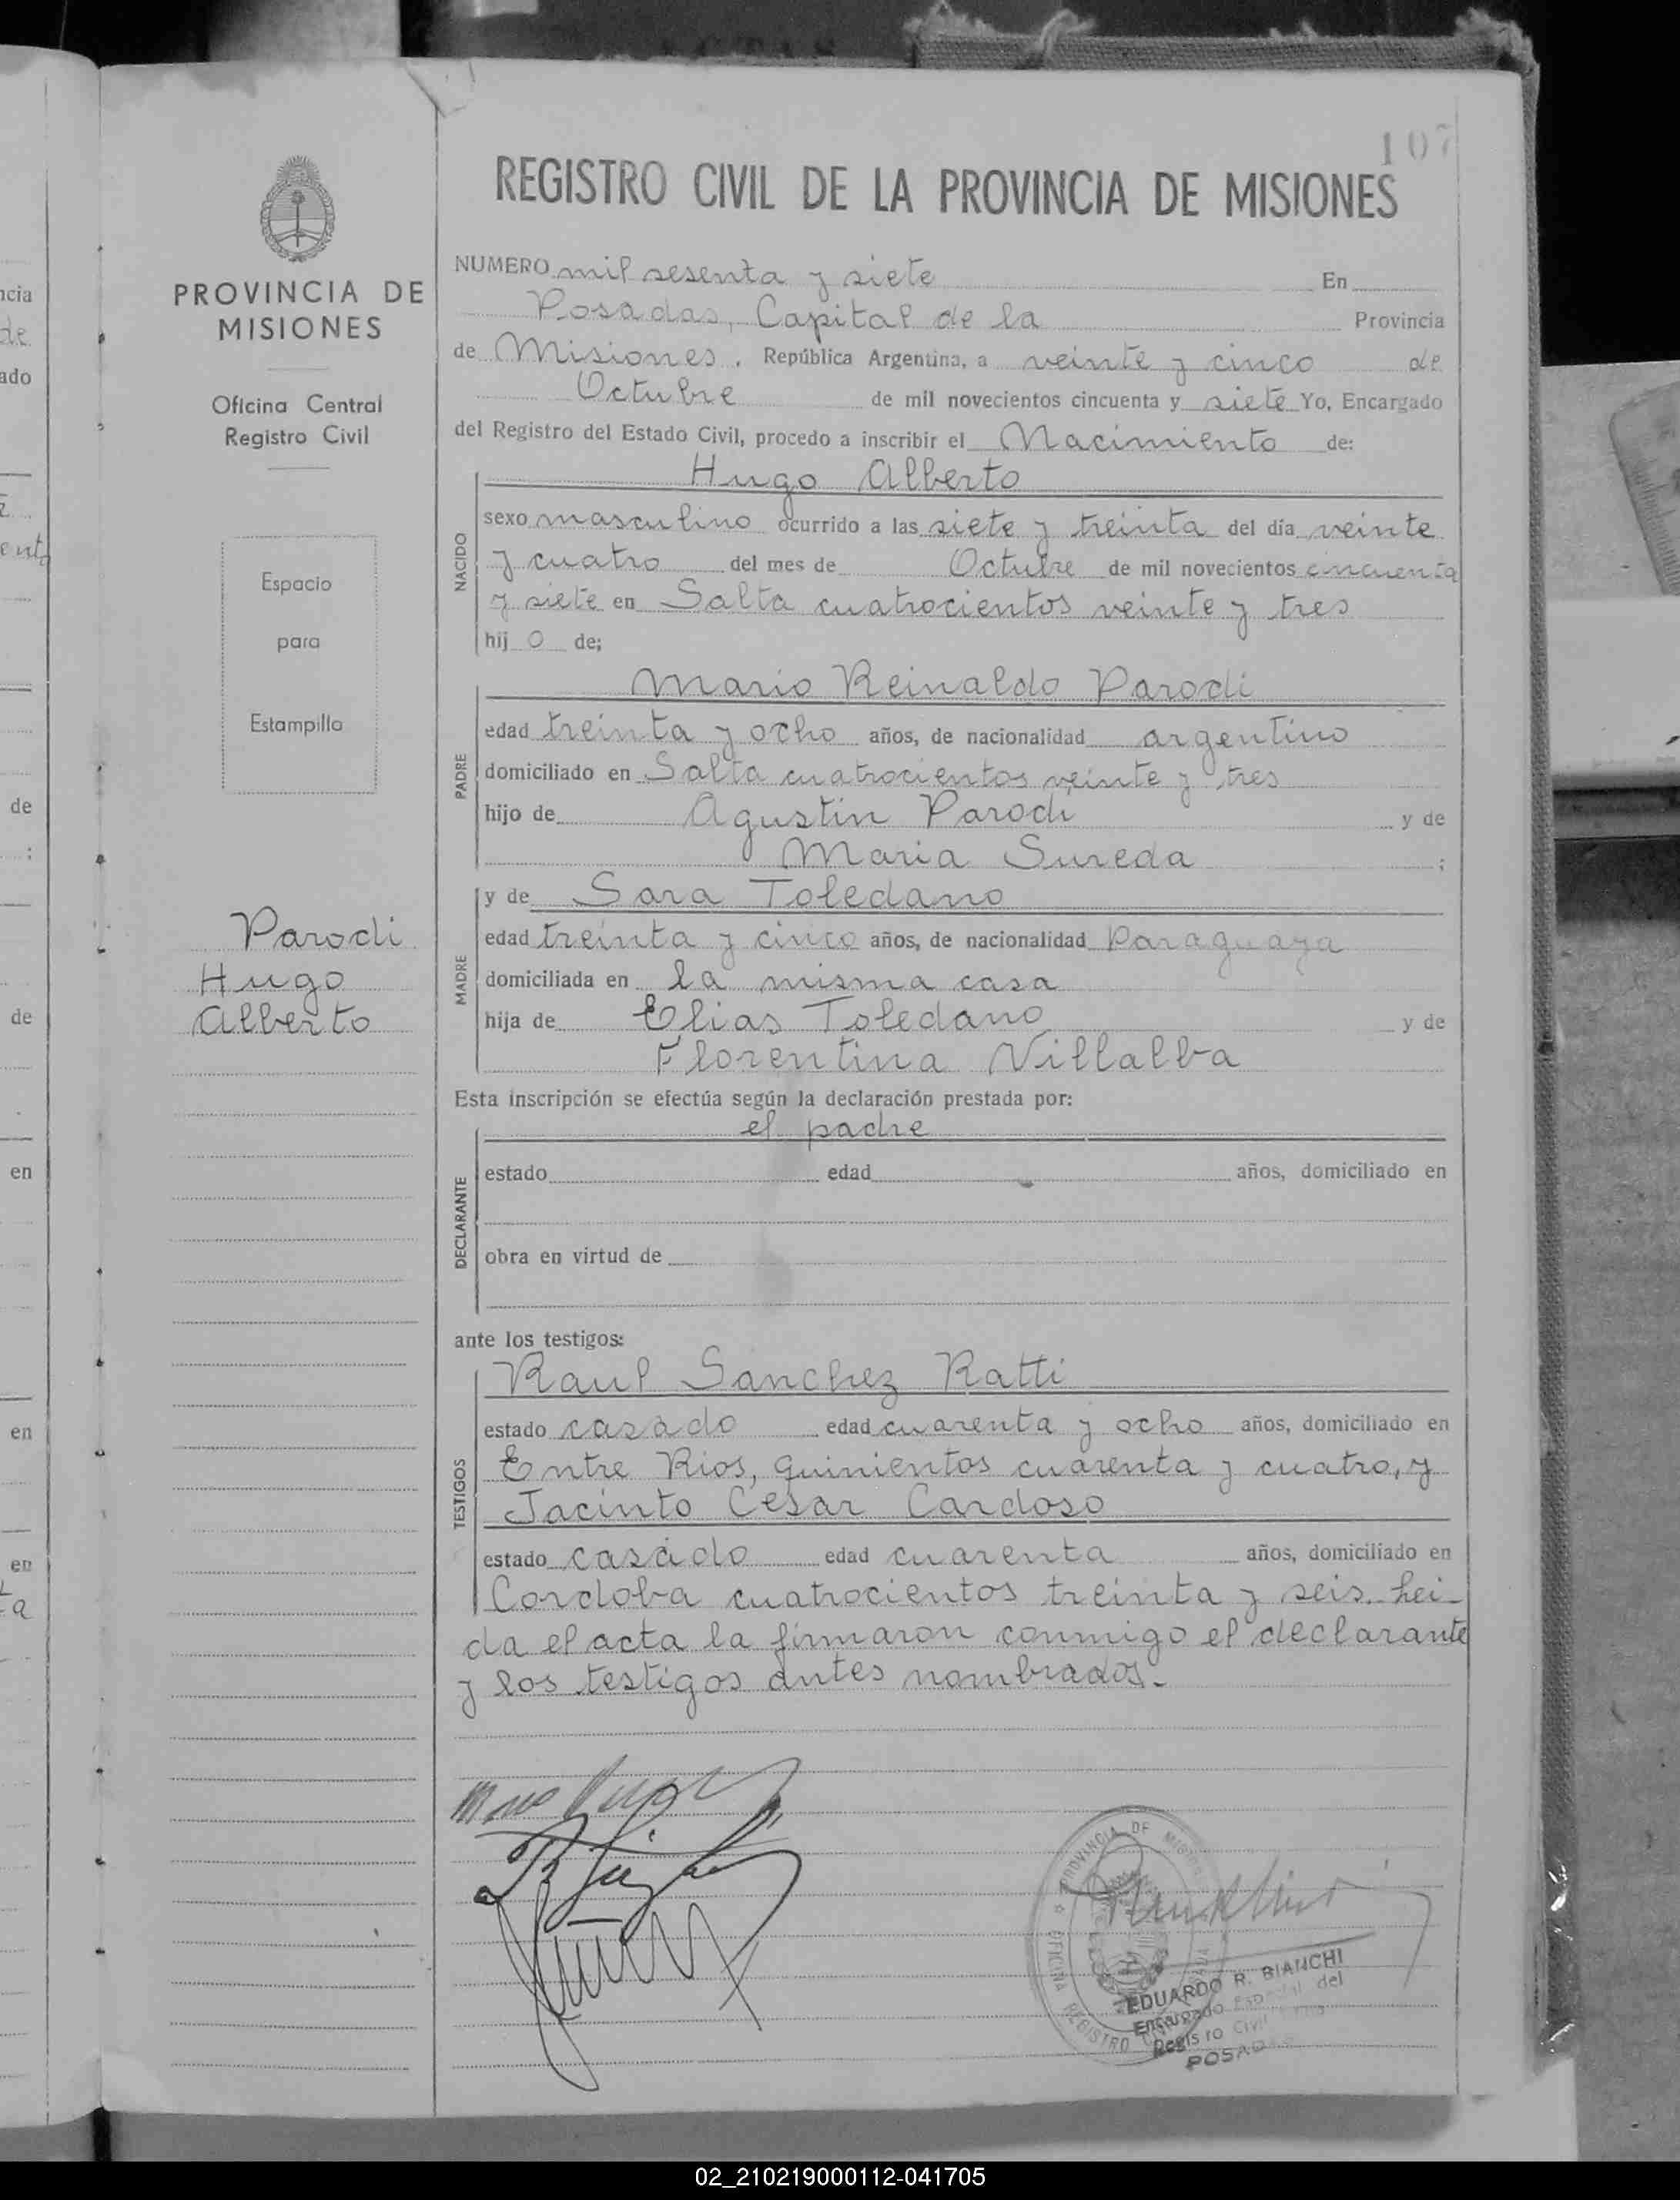 107
REGISTRO CIVIL DE LA PROVINCIA DE MISIONES
PROVINCIA DE
MISIONES
Oficina Central
Registro Civil
Espacio
para
Estampilla
Parodi
Hugo
Alberto
NUMERO mil sesenta y siete En
Posadas, Capital de la Provincia
de Misiones. República Argentina, a veinte y cinco de
Octubre de mil novecientos cincuenta y siete Yo, Encargado
del Registro del Estado Civil, procedo a inscribir el Nacimiento de:
NACIDO
Hugo Alberto
sexo masculino ocurrido a las siete y treinta del día veinte
y cuatro del mes de Octubre de mil novecientos cincuenta
y siete en Salta cuatrocientos veinte y tres
hij o de;
PADRE
Mario Reinaldo Parodi
edad treinta y ocho años, de nacionalidad argentino
domiciliado en Salta cuatrocientos veinte y tres
hijo de Agustin Parodi y de
Maria Sureda ;
MADRE
y de Sara Toledano
edad treinta y cinco años, de nacionalidad Paraguaya
domiciliada en la misma casa
hija de Elias Toledano y de
Florentina Villalba
Esta inscripción se efectúa según la declaración prestada por:
DECLARANTE
el padre
estado edad años, domiciliado en
obra en virtud de
ante los testigos:
TESTIGOS
Raul Sanchez Ratti
estado casado edad cuarenta y ocho años, domiciliado en
Entre Rios, quinientos cuarenta y cuatro, y
Jacinto Cesar Cardoso
estado casado edad cuarenta años, domiciliado en
Cordoba cuatrocientos treinta y seis. Lei-
da el acta la firmaron conmigo el declarante
y los testigos antes nombrados.-
PROVINCIA DE MISIONES
OFICINA REGISTRO CIVIL
EDUARDO R. BIANCHI
Encargado del
Registro Civil
POSADAS
02_210219000112-041705